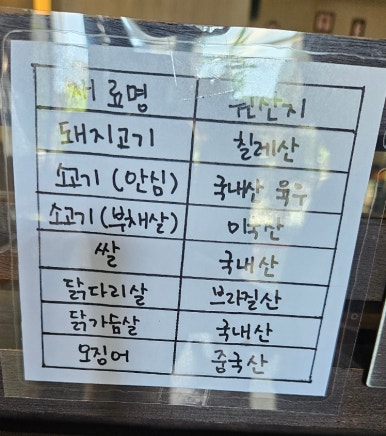 재료명 원산지
돼지고기 칠레산
소고기(안심) 국내산 육우
소고기(부채살) 미국산
쌀 국내산
닭다리살 브라질산
닭가슴살 국내산
오징어 중국산